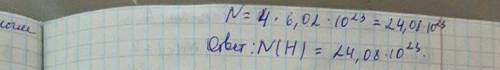 N = 4 · 6,02 · 10²³ = 24,08 · 10²³
Ответ: N(H) = 24,08 · 10²³.